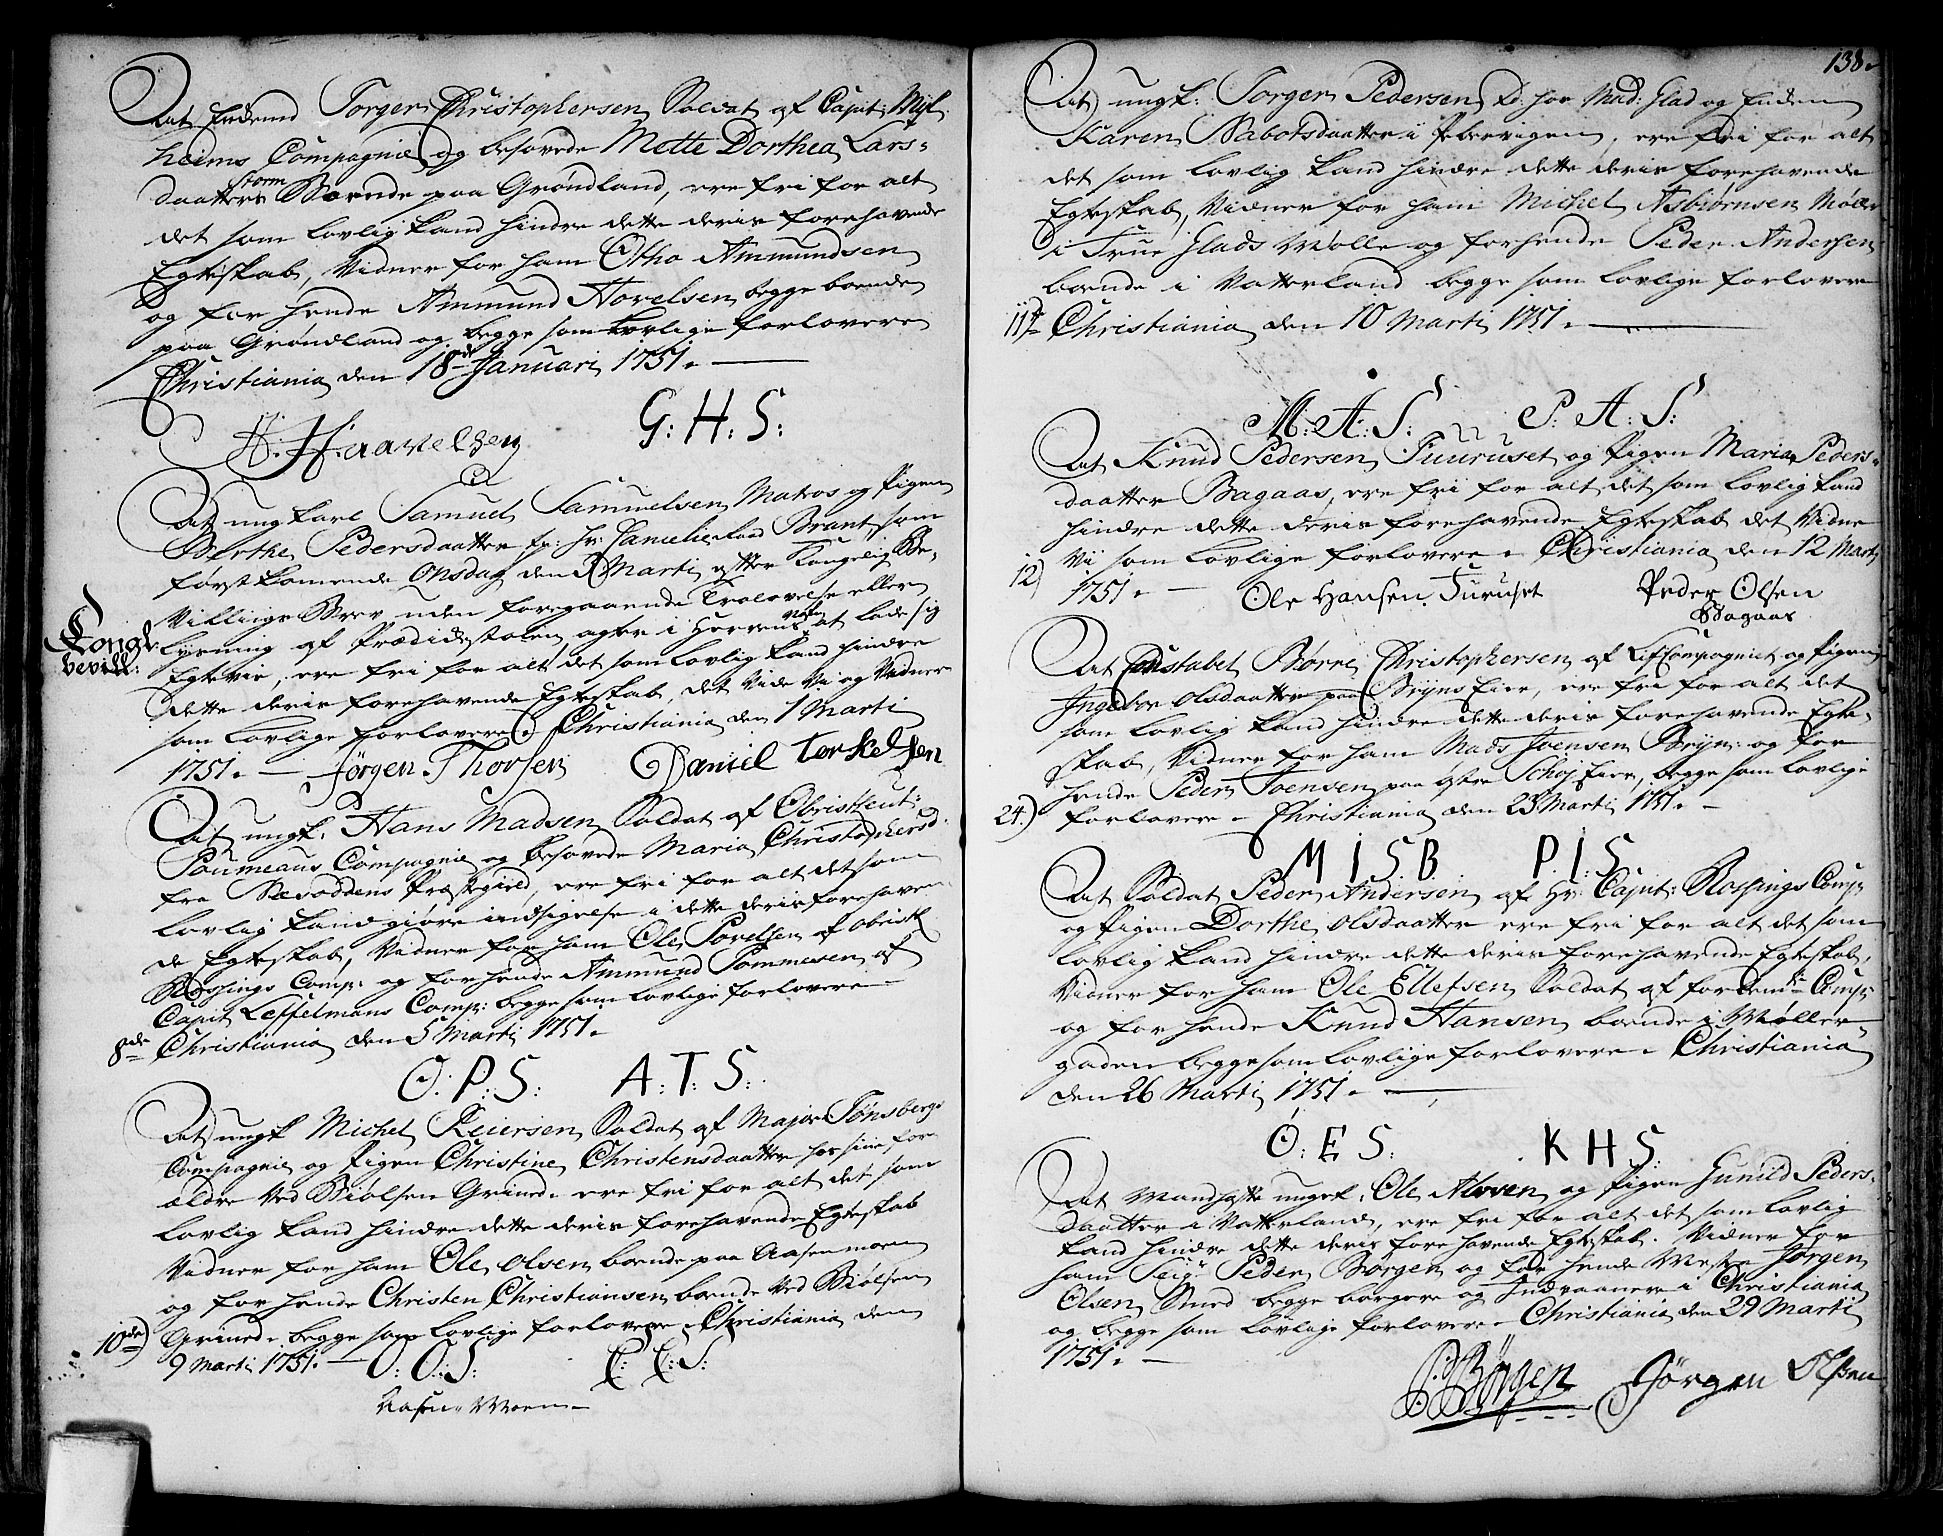 At Enkemand Torger Christophersen Soldat af Capit: Nyf
heims Compagnie og besovede Mette Dorthea Lars-
daatter Storm Boende paa Grønland, ere fri for alt
det som lovlig kand hindre dette deris forehavende
Egteskab, Vidner for ham Otho Ammundsen
og for hende Ammund Hovelsen begge boende
paa Grønland og begge som lovlige forlovere
Christiania den 18de Januari 1751.
A. Haavelsen G: H: S:
At ung karl Samuel Sammuelsen Matros og Pigen
Berthe Pedersdaatter Brant som
først komende Onsdag den 3 Marti efter Kongelig Be-
villings Brev uden foregaaende Trolovelse eller
Kongl:
bevill:
lysning af Prædikestolen agter i Herrens Nafn at lade sig
Egtevie, ere fri for alt det som lovlig kand hindre
dette deris forehavende Egteskab, det Vide Vi og Vidner
som lovlige forlovere. Christiania den 1 Marti
1751. Jørgen Thorsen Daniel Torkelsen
At ungk. Hans Madsen Soldat af Obristleut:
Poumeaus Compagnie og besovede Maria Christophersd:
fra Næsoddens Præstegield, ere fri for alt det som
lovlig kand giøre indsigelse i dette deris forehaven-
de Egteskab, Vidner for ham Ole Povelsen af Obristl
Rossings Comp: og for hende Ammund Tommesen af
Capit Leffelmans Comp: begge som lovlige forlovere
8de Christiania den 5 Marti 1751.
O: P: S: A: T: S:
At ungk Michel Reiersen Soldat af Major Tønsbergs
Compagnie og Pigen Christine Christensdaatter hos sine for
ældre Ved Biølsen Grind. ere fri for alt det som
lovlig kand hindre dette deris forehavende Egteskab
Vidner for ham Ole Olsen boende paa Aasen moen
og for hende Christen Christiansen boende Ved Biølsen
10de) Grind. begge som lovlige forlovere Christiania den
9 Marti 1751. O: O: S: C: C: S:
Aasen Moen
138.
At ungk: Torger Pedersen hos Mad: Glad og Enken
Karen Nabotsdaatter i Pibervigen, ere fri for alt
det som lovlig kand hindre dette deris forehavende
Egteskab, Vidner for ham Michel Asbiørnsen Møller
i Frue Glads Mølle og for hende Peder Andersen
boende i Vatterland begge som lovlige forlovere
11te Christiania den 10 Marti 1751.
M: A: S: P: A: S:
At Knud Pedersen Fuuruset og Pigen Maria Peders-
daatter Bagaas, ere fri for alt det som lovlig kand
hindre dette deris forehavende Egteskab det Vidne
Vi som lovlige forlovere. Christiania den 12 Marti
12) 1751. Ole Hansen Furuset Peder Olsen
Bagaas
At Constabel Børre Christophersen af Lif Compagniet og Pigen
Ingebor Olsdaatter paa Bryns Eier, ere fri for alt det
som lovlig kand hindre dette deris forehavende Egte-
skab, Vidner for ham Mads Joensen Bryn: og for
hende Peder Joensen paa østre Schøj Eier, begge som lovlige
24.) forlovere. Christiania den 23 Marti 1751.
M I S B P I S
At Soldat Peder Andersen af Hr: Capit: Rossings Comp:
og Pigen Dorthe Olsdaatter ere fri for alt det som
lovlig kand hindre dette deris forehavende Egteskab,
Vidner for ham Ole Ellefsen Soldat af forbemte Comp:
og for hende Knud Hansen boende i Møller-
gaden begge som lovlige forlovere. Christiania
den 26 Marti 1751.
O: E S: K H S:
At Mandhafte ungk: Ole Alvsen og Pigen Gunild Peders-
daatter i Vatterland, ere fri for alt det som lovlig
kand hindre dette deris forehavende Egteskab. Vidner for
ham Seigr Peder Børgen og for hende Mester Jørgen
Olsen Smed begge borgere og Indvaanere i Christiania
og begge som lovlige forlovere. Christiania den 29 Marti
1751.
P: Børgen Jørgen Olsen